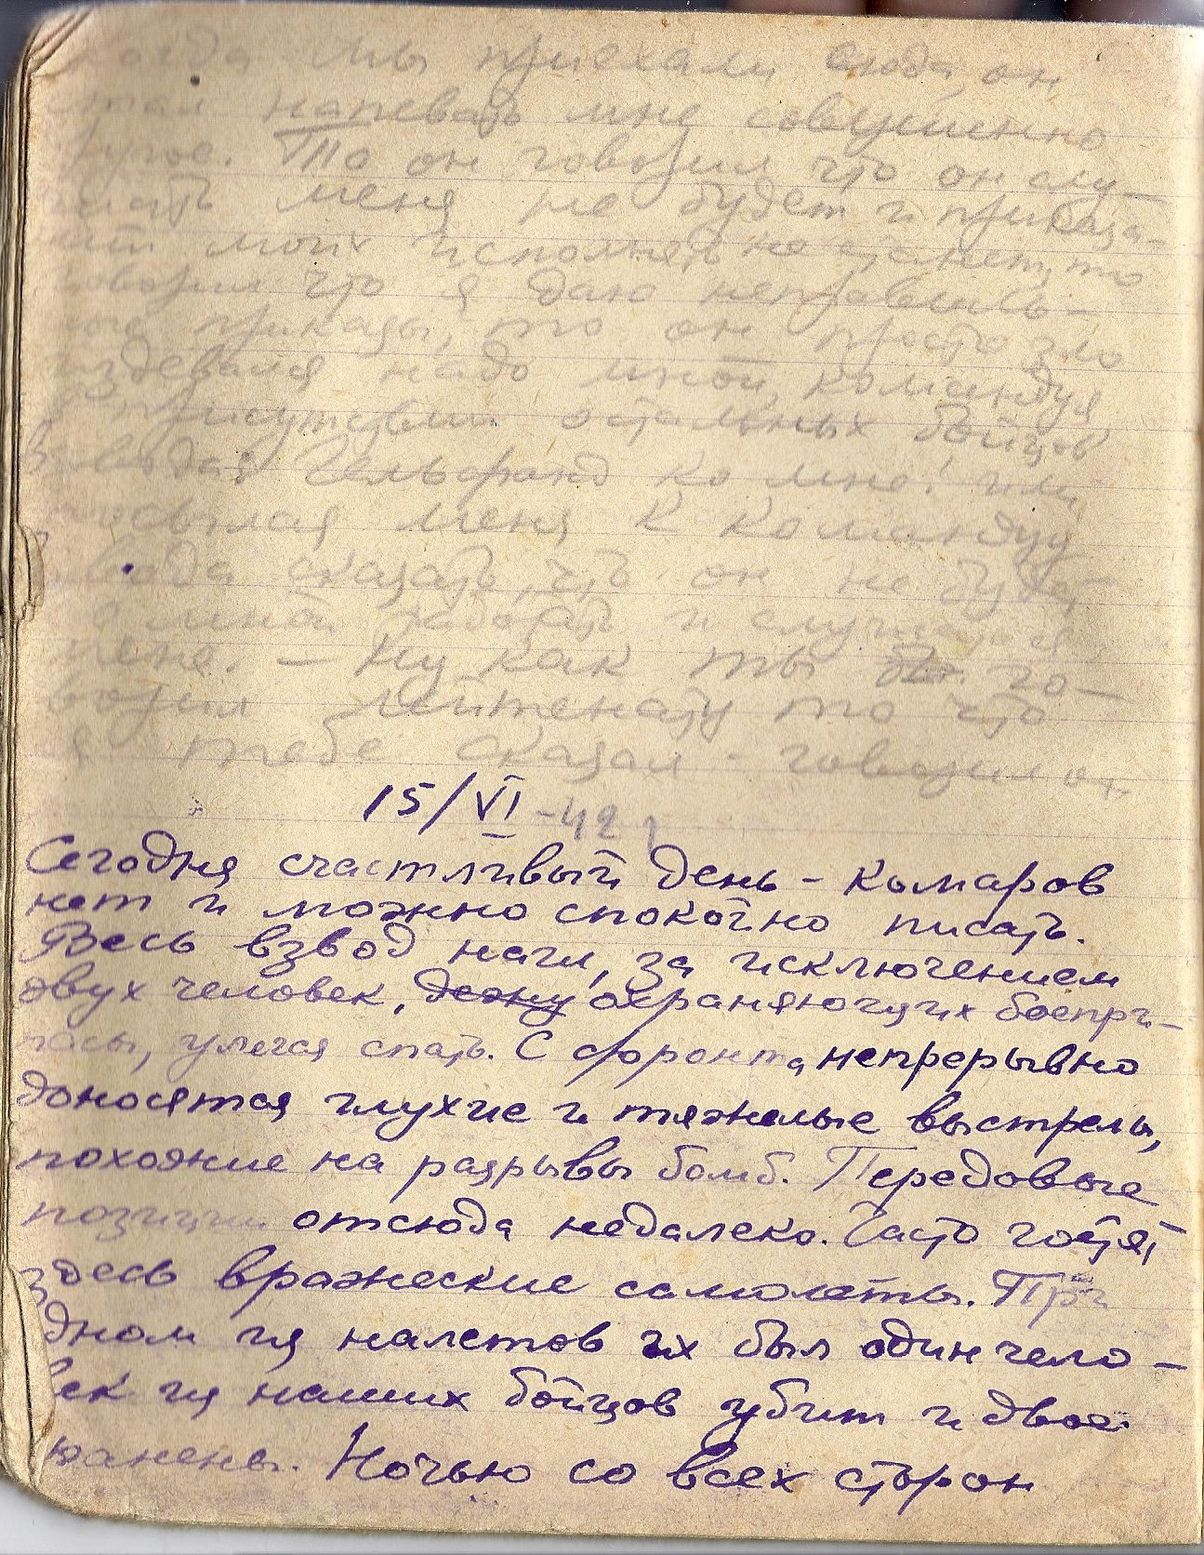 когда мы приехали сюда, он
стал напевать мне совершенно
другое. То он говорил что он слу-
шать меня не будет и приказа-
ний моих исполнять не станет, то
говорил что я даю неправиль-
ные приказы, то он просто зло
издевался надо мной, командуя
в присутствии остальных бойцов
взвода Гельфанд ко мне! или
посылая меня к командиру
взвода сказать, что он не будет
со мной работать и слушаться
меня. – Ну как ты го-
ворил лейтенанту то что
я тебе сказал – говорил он
15/VI -42 г
Сегодня счастливый день – комаров
нет и можно спокойно писать.
Весь взвод наш, за исключением
двух человек, охраняющих боепри-
пасы, улегся спать. С фронта непрерывно
доносятся глухие и тяжелые выстрелы,
похожие на разрывы бомб. Передовые
позиции отсюда недалеко. Часто гостят
здесь вражеские самолеты. При
одном из налетов их был один чело-
век из наших бойцов убит и двое
ранены. Ночью со всех сторон